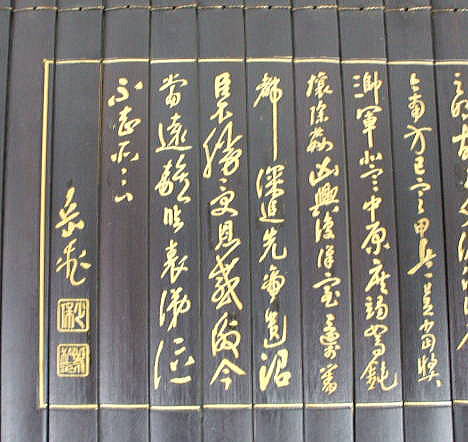 今南方已定甲兵已足當獎
帥軍北定中原庶竭駑鈍
攘除姦凶興復漢室還於舊
都深追先帝遺詔
臣不勝受恩感激今
當遠離臨表涕泣
不知所云
岳飛